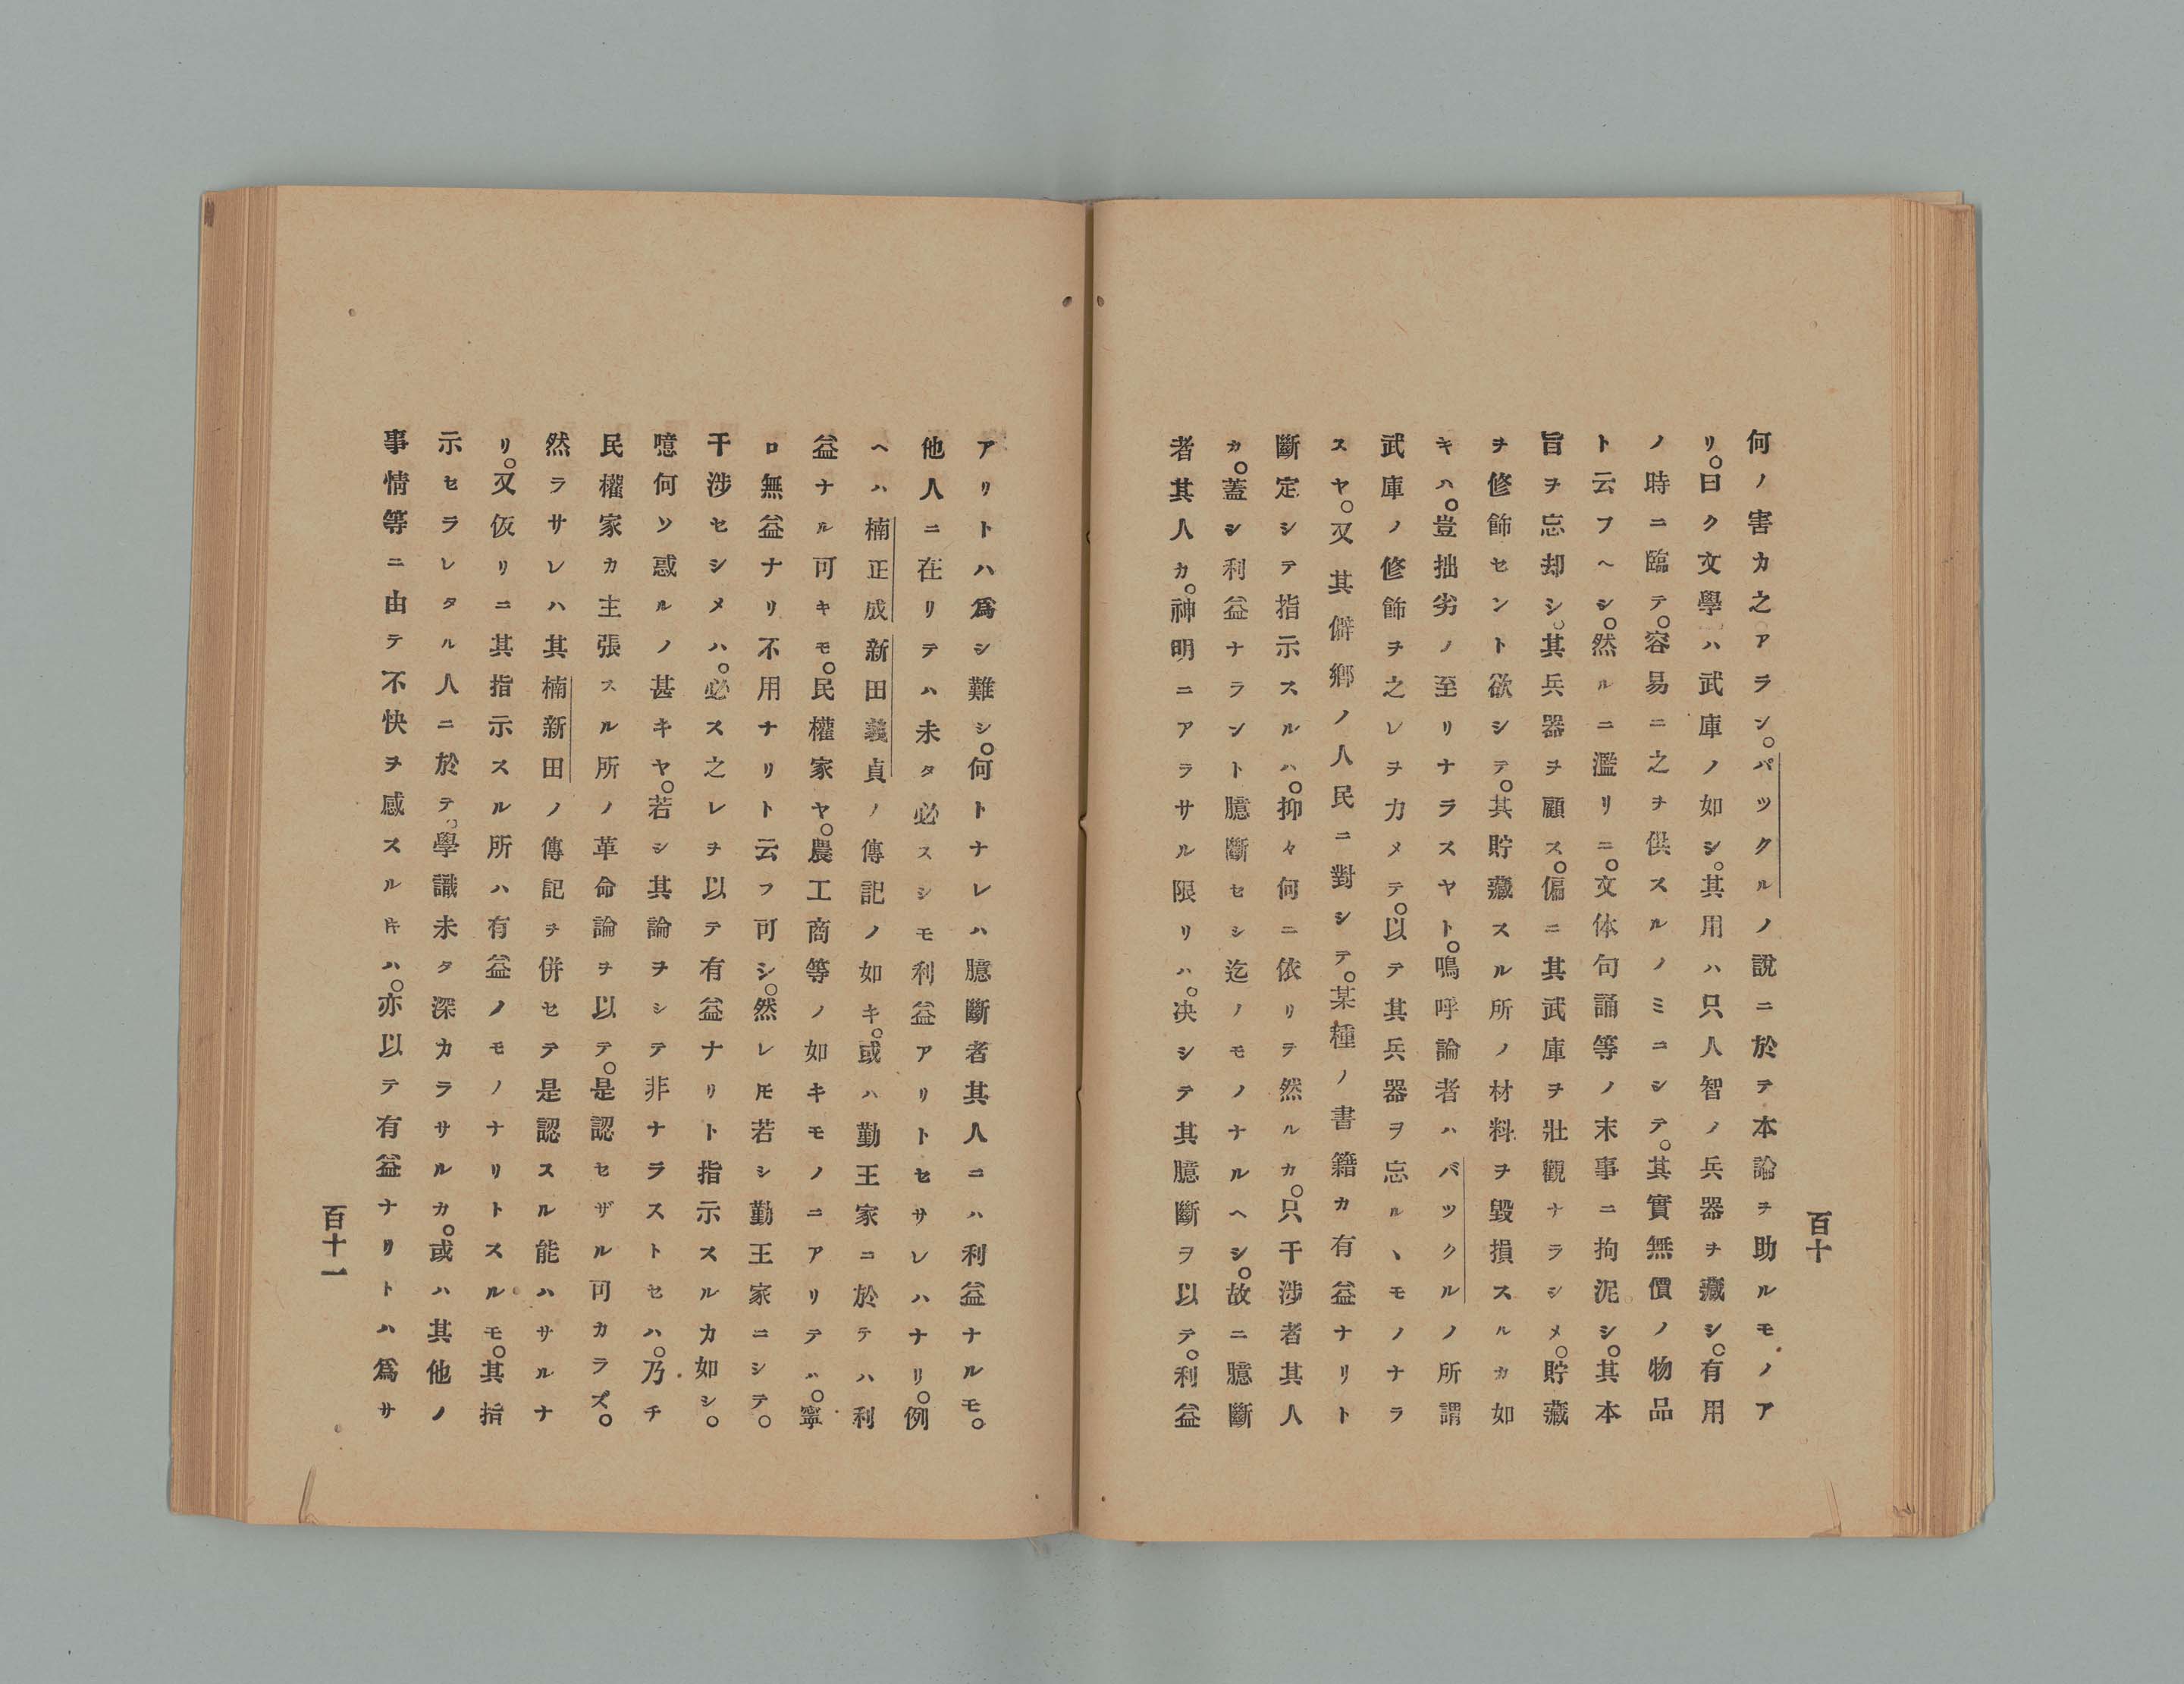 百十
何ノ害カ之アラン。バツクルノ說ニ於テ本論ヲ助ルモノア
リ。曰ク文學ハ武庫ノ如シ。其用ハ只人智ノ兵器ヲ藏シ。有用
ノ時ニ臨テ。容易ニ之ヲ供スルノミニシテ。其實無價ノ物品
ト云フヘシ。然ルニ濫リニ。文体句誦等ノ末事ニ拘泥シ。其本
旨ヲ忘却シ。其兵器ヲ顧ス。偏ニ其武庫ヲ壯觀ナラシメ。貯藏
ヲ修飾セント欲シテ。其貯藏スル所ノ材料ヲ毀損スルカ如
キハ。豈拙劣ノ至リナラスヤト。嗚呼論者ハバツクルノ所謂
武庫ノ修飾ヲ之レヲ力メテ。以テ其兵器ヲ忘ルヽモノナラ
スヤ。又其僻鄕ノ人民ニ對シテ。某種ノ書籍カ有益ナリト
斷定シテ指示スルハ。抑々何ニ依リテ然ルカ。只干涉者其人
カ。蓋シ利益ナラント臆斷セシ迄ノモノナルヘシ。故ニ臆斷
者其人カ。神明ニアラサル限リハ。决シテ其臆斷ヲ以テ。利益
アリトハ爲シ難シ。何トナレハ臆斷者其人ニハ利益ナルモ。
他人ニ在リテハ未タ必スシモ利益アリトセサレハナリ。例
ヘハ楠正成新田義貞ノ傳記ノ如キ。或ハ勤王家ニ於テハ利
益ナル可キモ。民權家ヤ。農工商等ノ如キモノニアリテハ。寧
ロ無益ナリ不用ナリト云フ可シ。然レ𪜈若シ勤王家ニシテ。
干涉セシメハ。必ス之レヲ以テ有益ナリト指示スルカ如シ。
噫何ソ惑ルノ甚キヤ。若シ其論ヲシテ非ナラストセハ。乃チ
民權家カ主張スル所ノ革命論ヲ以テ。是認セザル可カラズ。
然ラサレハ其楠新田ノ傳記ヲ併セテ是認スル能ハサルナ
リ。又仮リニ其指示スル所ハ有益ノモノナリトスルモ。其指
示セラレタル人ニ於テ。學識未タ深カラサルカ。或ハ其他ノ
事情等ニ由テ不快ヲ感スル𪜈ハ。亦以テ有益ナリトハ爲サ
百十一